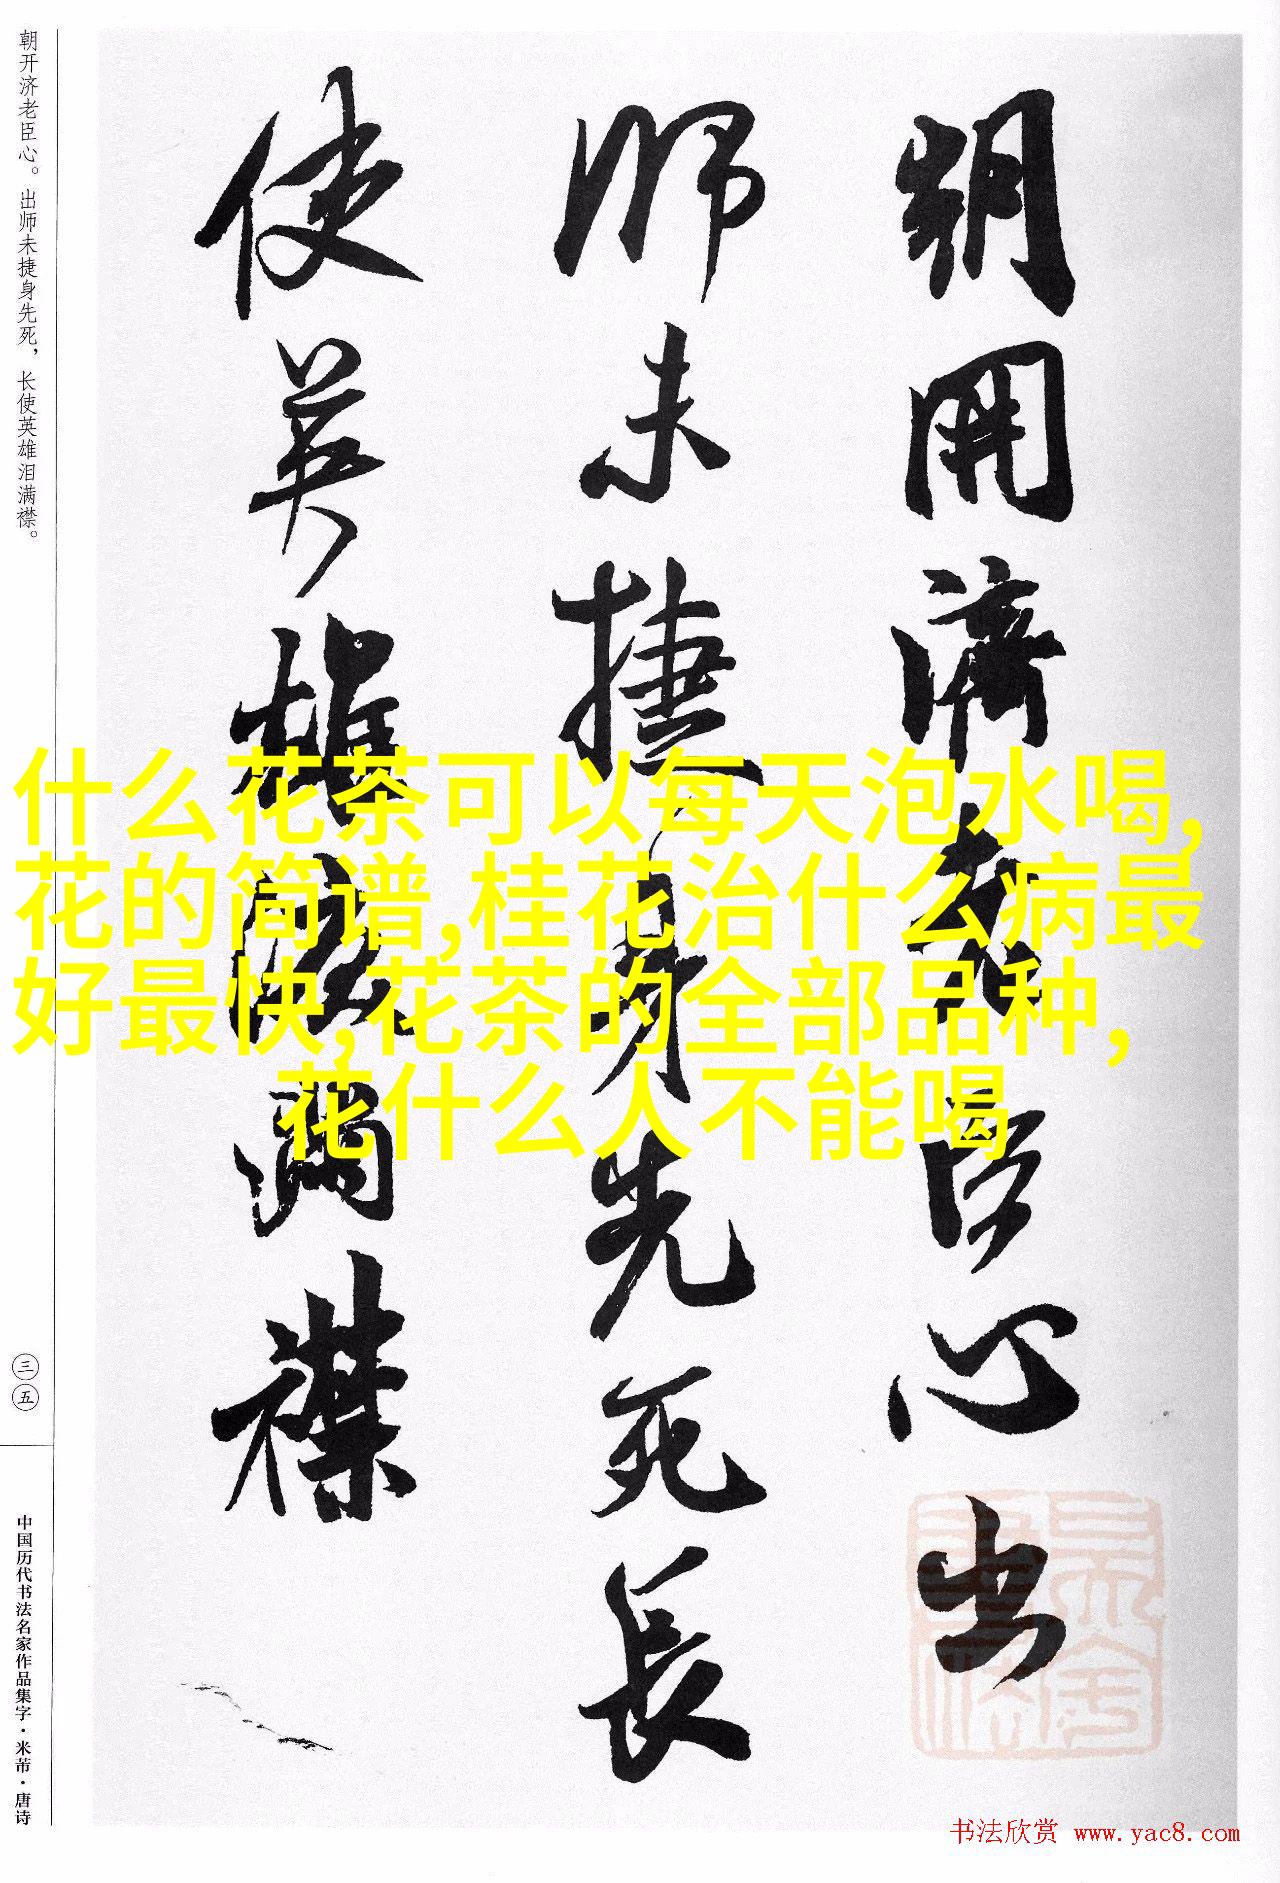 朝开济老臣心。出师未捷身先死，长使英雄泪满襟。
三五
中国历代书法名家作品集字·米芾·唐诗
朝開濟老臣心出
師未捷身先死長
使英雄淚滿襟
什么花茶可以每天泡水喝,
花的简谱,桂花治什么病最
好最快,花茶的全部品种,
花什么人不能喝
书法欣赏 www.yac8.com